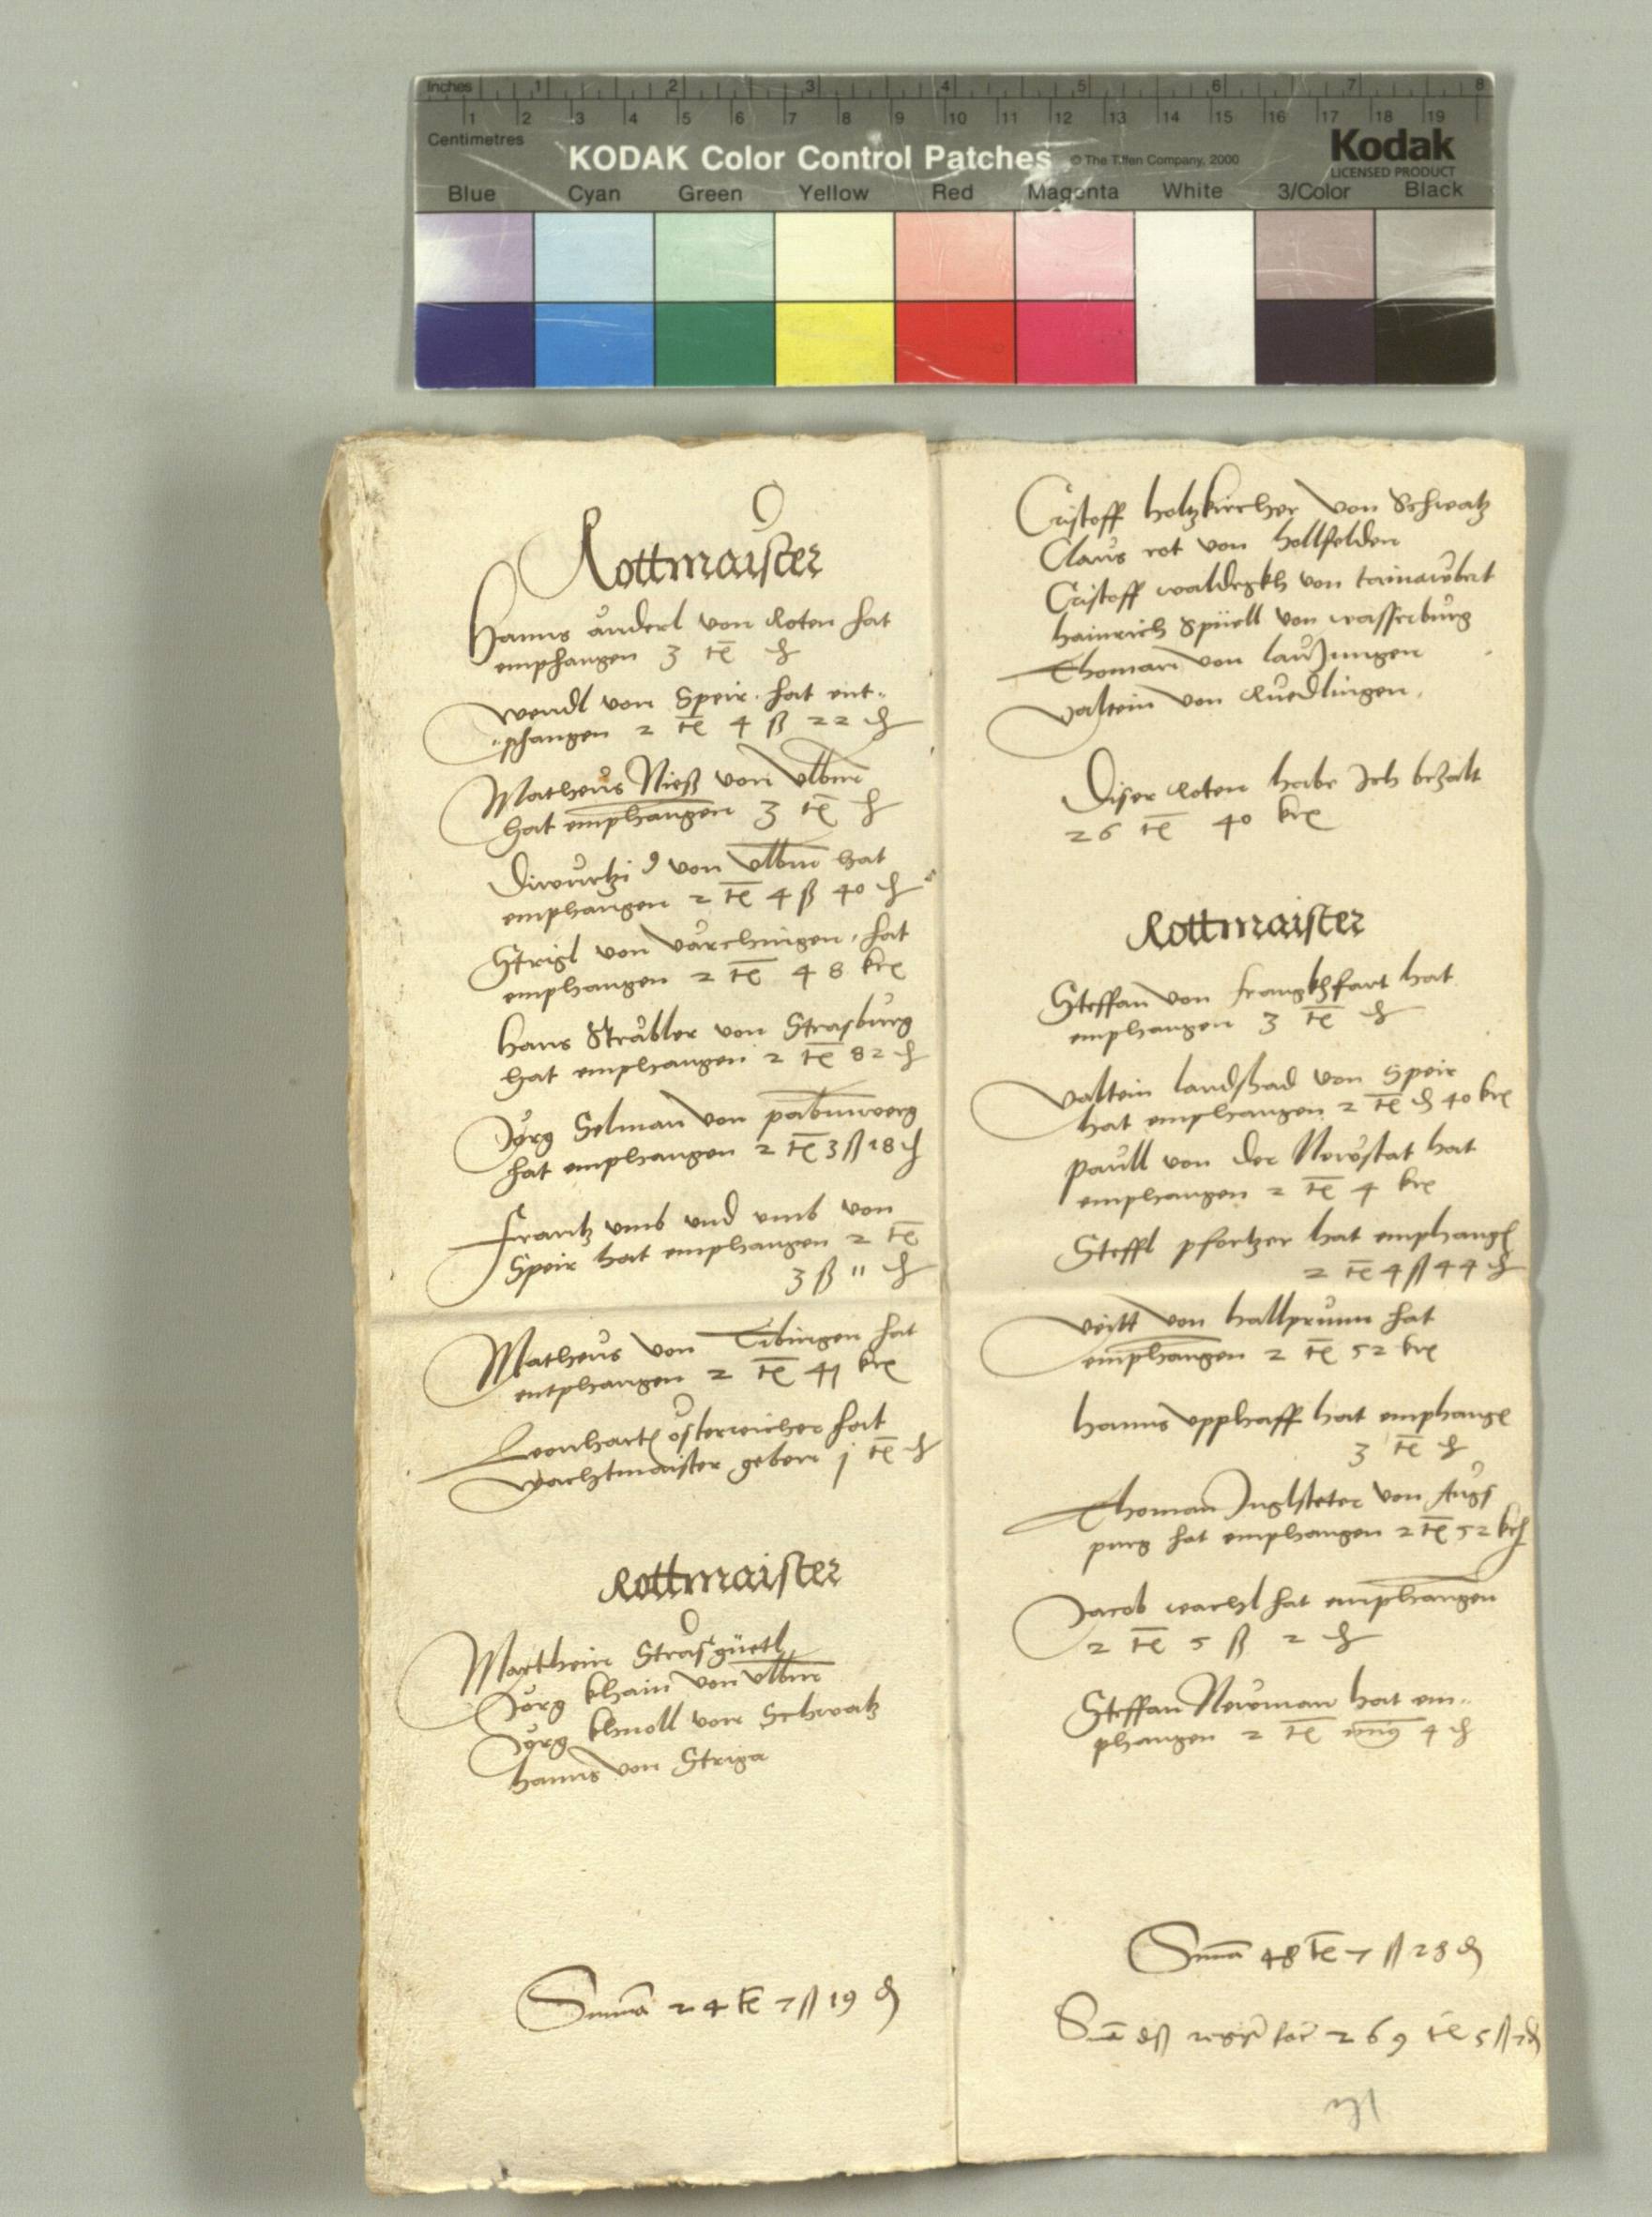 Inches 1 2 3 4 5 6 7 8
1 2 3 4 5 6 7 8 9 10 11 12 13 14 15 16 17 18 19
Centimetres
KODAK Color Control Patches © The Tiffen Company, 2000 Kodak
LICENSED PRODUCT
Blue Cyan Green Yellow Red Magenta White 3/Color Black
Rottmaister
Hanns anderl von Roten hat
emphangen 3 tt ₰
Wendl von Speir hat ent-
-phangen 2 tt 4 ß 22 ₰
Matheus Nieß von Ulbm
hat emphangen 3 tt ₰
von Ulbm hat
emphangen 2 tt 4 ß 40 ₰
Strigl von varchingen hat
emphangen 2 tt 48 kr
Hans Strabler von Strasburg
hat emphangen 2 tt 82 ₰
Jörg Selman von pabmwerg
hat emphangen 2 tt 3 ß 28 ₰
Frantz umb und umb von
Speir hat emphangen 2 tt
3 ß 11 ₰
Matheus von Tibingen hat
entphangen 2 tt 41 kr
Leonhart österreicher hat
wachtmaister geben 1 tt ₰
Rottmaister
Marthein Strasgüetl
Jörg khain von Ulbm
Jörg khnoll von Schwatz
hanns von Striga
Suma 24 tt 7 ß 19 ₰
Cristoff holtzkircher von Schwatz
Claus rot von hollfelden
Cristoff waldegkh von
hainrich Spüell von wasserburg
Thoman von lauJungen
valtein von Ruedlingen
Diser Roten habe Ich bezalt
26 tt 40 kr
Rottmaister
Steffan von frangkhfart hat
emphangen 3 tt ₰
valtein landshad von Speir
hat emphangen 2 tt ₰ 40 kr
paull von der Newstat hat
emphangen 2 tt 4 kr
Steffl pfortzer hat emphang
2 tt 4 ß 44 ₰
veitt von hallprunn hat
emphangen 2 tt 52 kr
hanns upphaff hat emphang
3 tt ₰
Thoman Inglsteter von Augs
purg hat emphangen 2 tt 52 kr
Jacob wachl hat emphangen
2 tt 5 ß 2 ₰
Steffan Newman hat em-
phangen 2 tt 4 ₰
Suma 48 tt 7 ß 28 ₰
Suma 269 tt 5 ß